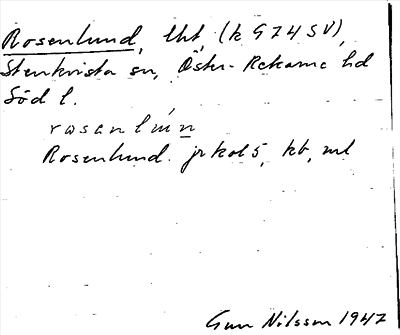 Rosenlund, lht, (k G74 SV),
Stenkvista sn, Öster-Rekarne hd
Söd l.
rosenlún
Rosenlund. jrkot 5, kb, ml
Gun Nilsson 1947